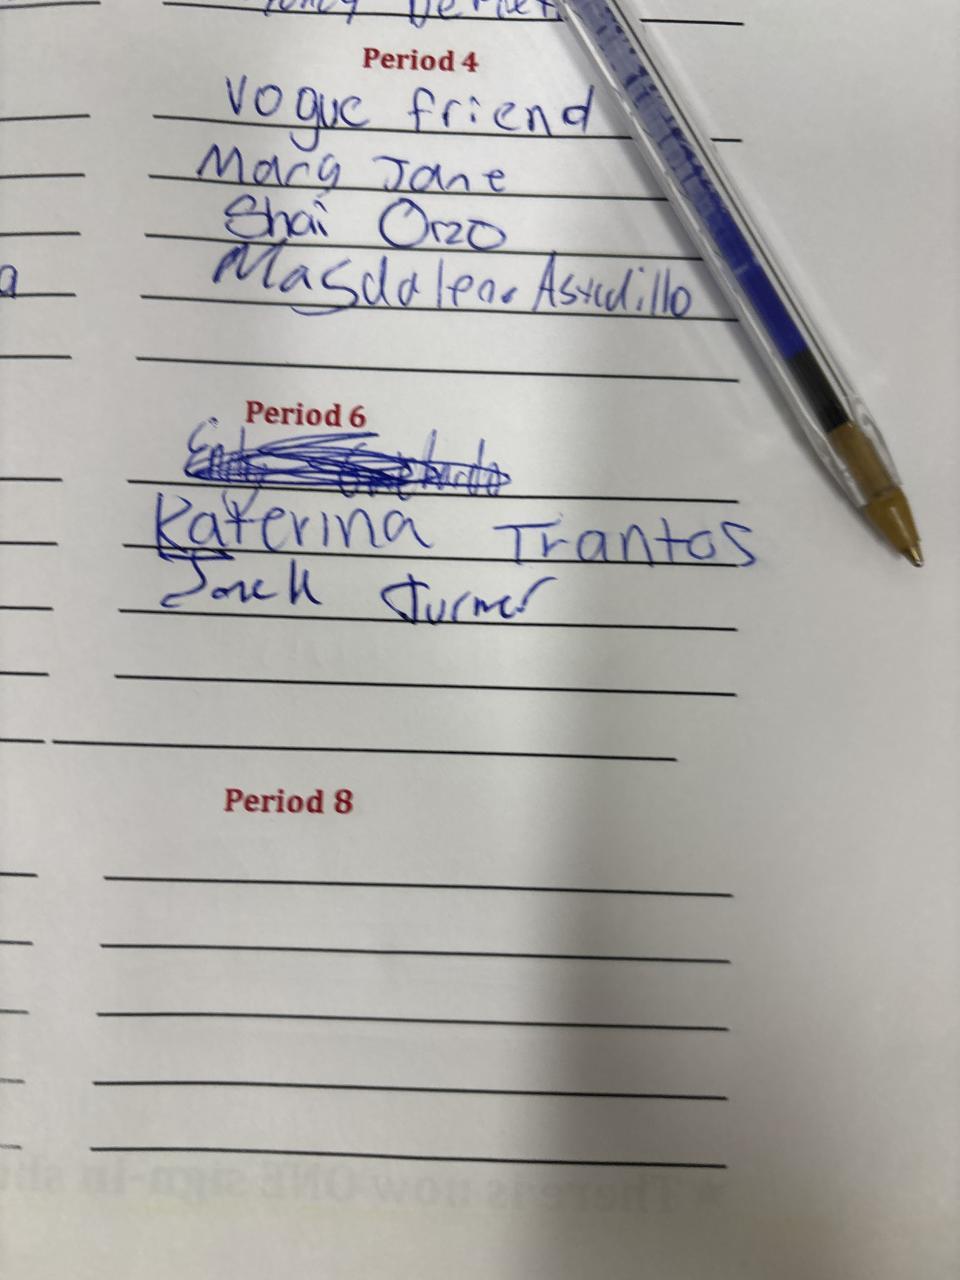 Period 4
Vogue friend
Mary Jane
Shai Orzo
Magdalena Astudillo
a
Period 6
Katerina Trantos
Jack Turner
Period 8
* There is now ONE sign-in